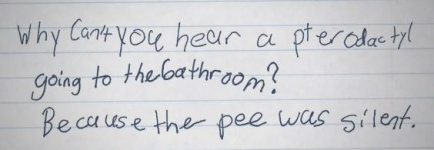 Why Can't you hear a pterodactyl
going to the bathroom?
Because the pee was silent.